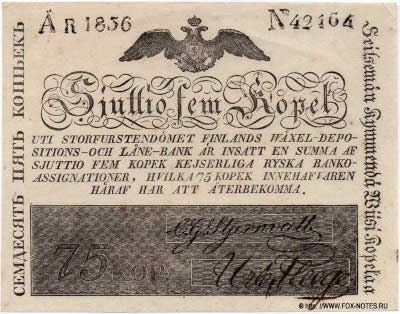 ÅR 1836
No 42164
СЕМДЕСЯТЬ ПЯТЬ КОПѢЕКЪ
Sjuttio fem Kopek
UTI STORFURSTENDÖMET FINLANDS WÄXEL-DEPO-
SITIONS-OCH LÅNE-BANK ÄR INSATT EN SUMMA AF
SJUTTIO FEM KOPEK KEJSERLIGA RYSKA BANKO-
ASSIGNATIONER, HVILKA 75 KOPEK INNEHAFVAREN
HÄRAF HAR ATT ÅTERBEKOMMA.
Seitsemän Kymmendä Wiisi Kopekaa
75 KOP.
© http://www.FOX-NOTES.RU